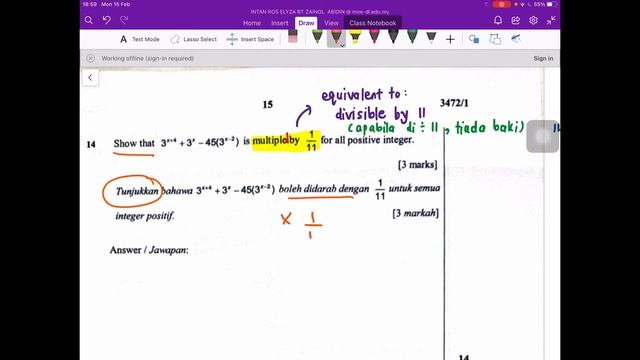 18:59 Mon 15 Feb
INTAN ROS ELYZA BT ZAINOL ABIDIN @ moe-dl.edu.my
55%
Home Insert Draw View Class Notebook
Text Mode Lasso Select Insert Space
Working offline (sign-in required) Sign in
equivalent to:
15 3472/1
divisible by 11
(apabila di ÷ 11, tiada baki)
14 Show that 3^(x+4) + 3^x − 45(3^(x−2)) is multiple by 1/11 for all positive integer.
[3 marks]
Tunjukkan bahawa 3^(x+4) + 3^x − 45(3^(x−2)) boleh didarab dengan 1/11 untuk semua
integer positif. [3 markah]
× 1/1
Answer / Jawapan:
14